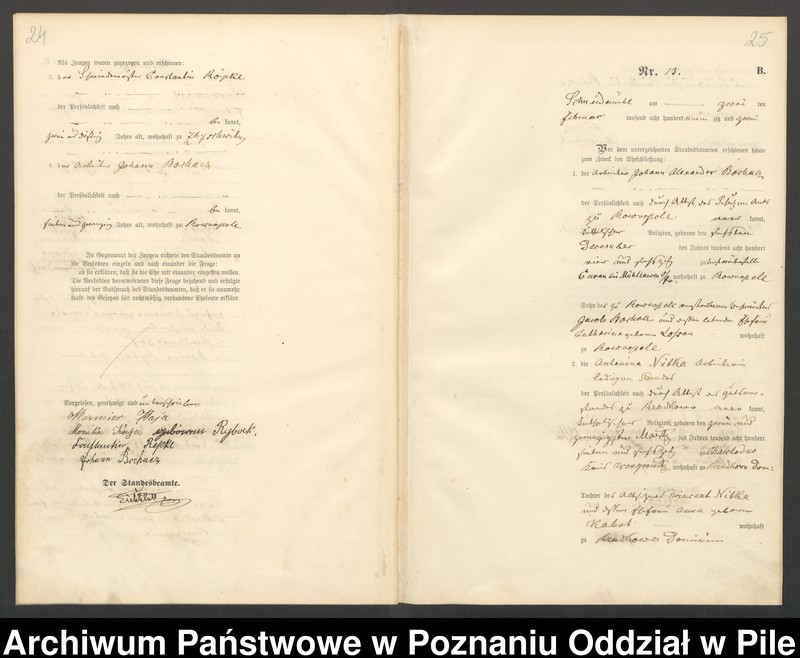 24
Als Zeugen waren zugezogen und erschienen:
3. der Schmiedemeister Constantin Röpke
der Persönlichkeit nach
be kannt,
zwei und dreißig Jahre alt, wohnhaft zu
4. der Arbeiter Johann Bochacz
der Persönlichkeit nach
be kannt,
sieben und zwanzig Jahre alt, wohnhaft zu Rownopole
In Gegenwart der Zeugen richtete der Standesbeamte an
die Verlobten einzeln und nach einander die Frage:
ob sie erklären, daß sie die Ehe mit einander eingehen wollen.
Die Verlobten beantworteten diese Frage bejahend und erfolgte
hierauf der Ausspruch des Standesbeamten, daß er sie nunmehr
kraft des Gesetzes für rechtmäßig verbundene Eheleute erkläre.
Vorgelesen, genehmigt und unterschrieben
Kaja
Monika Kaja geborenen Ryback.
Constantin Röpke
Johann Bochacz
Der Standesbeamte.
25
Nr. 13. B.
Schneidemühl am zwei ten
Februar tausend acht hundert neun zig und zwei
Vor dem unterzeichneten Standesbeamten erschienen heute
zum Zweck der Eheschließung:
1. der Arbeiter Johann Alexander Bochacz,
der Persönlichkeit nach durch Attest des Distrikts Amts
zu Rownopole aner kannt,
katholischer Religion, geboren den sechsten
Dezember des Jahres tausend acht hundert
vier und sechszig zu
wohnhaft zu Rownopole
Sohn des zu Rownopole verstorbenen
Jacob Bochacz und dessen lebenden Ehefrau
Catharina geboren wohnhaft
zu Rownopole
2. die Antonina Nitka Arbeiterin
ledigen Standes
der Persönlichkeit nach durch Attest des Gutsvor-
standes zu aner kannt,
katholischer Religion, geboren den zwei und
zwanzigsten März des Jahres tausend acht hundert
sieben und sechszig zu
Kreis Wongrowitz, wohnhaft zu Dom:
Tochter des Vincent Nitka
und dessen Ehefrau Anna geboren
Kabat wohnhaft
zu Dominium
Archiwum Państwowe w Poznaniu Oddział w Pile